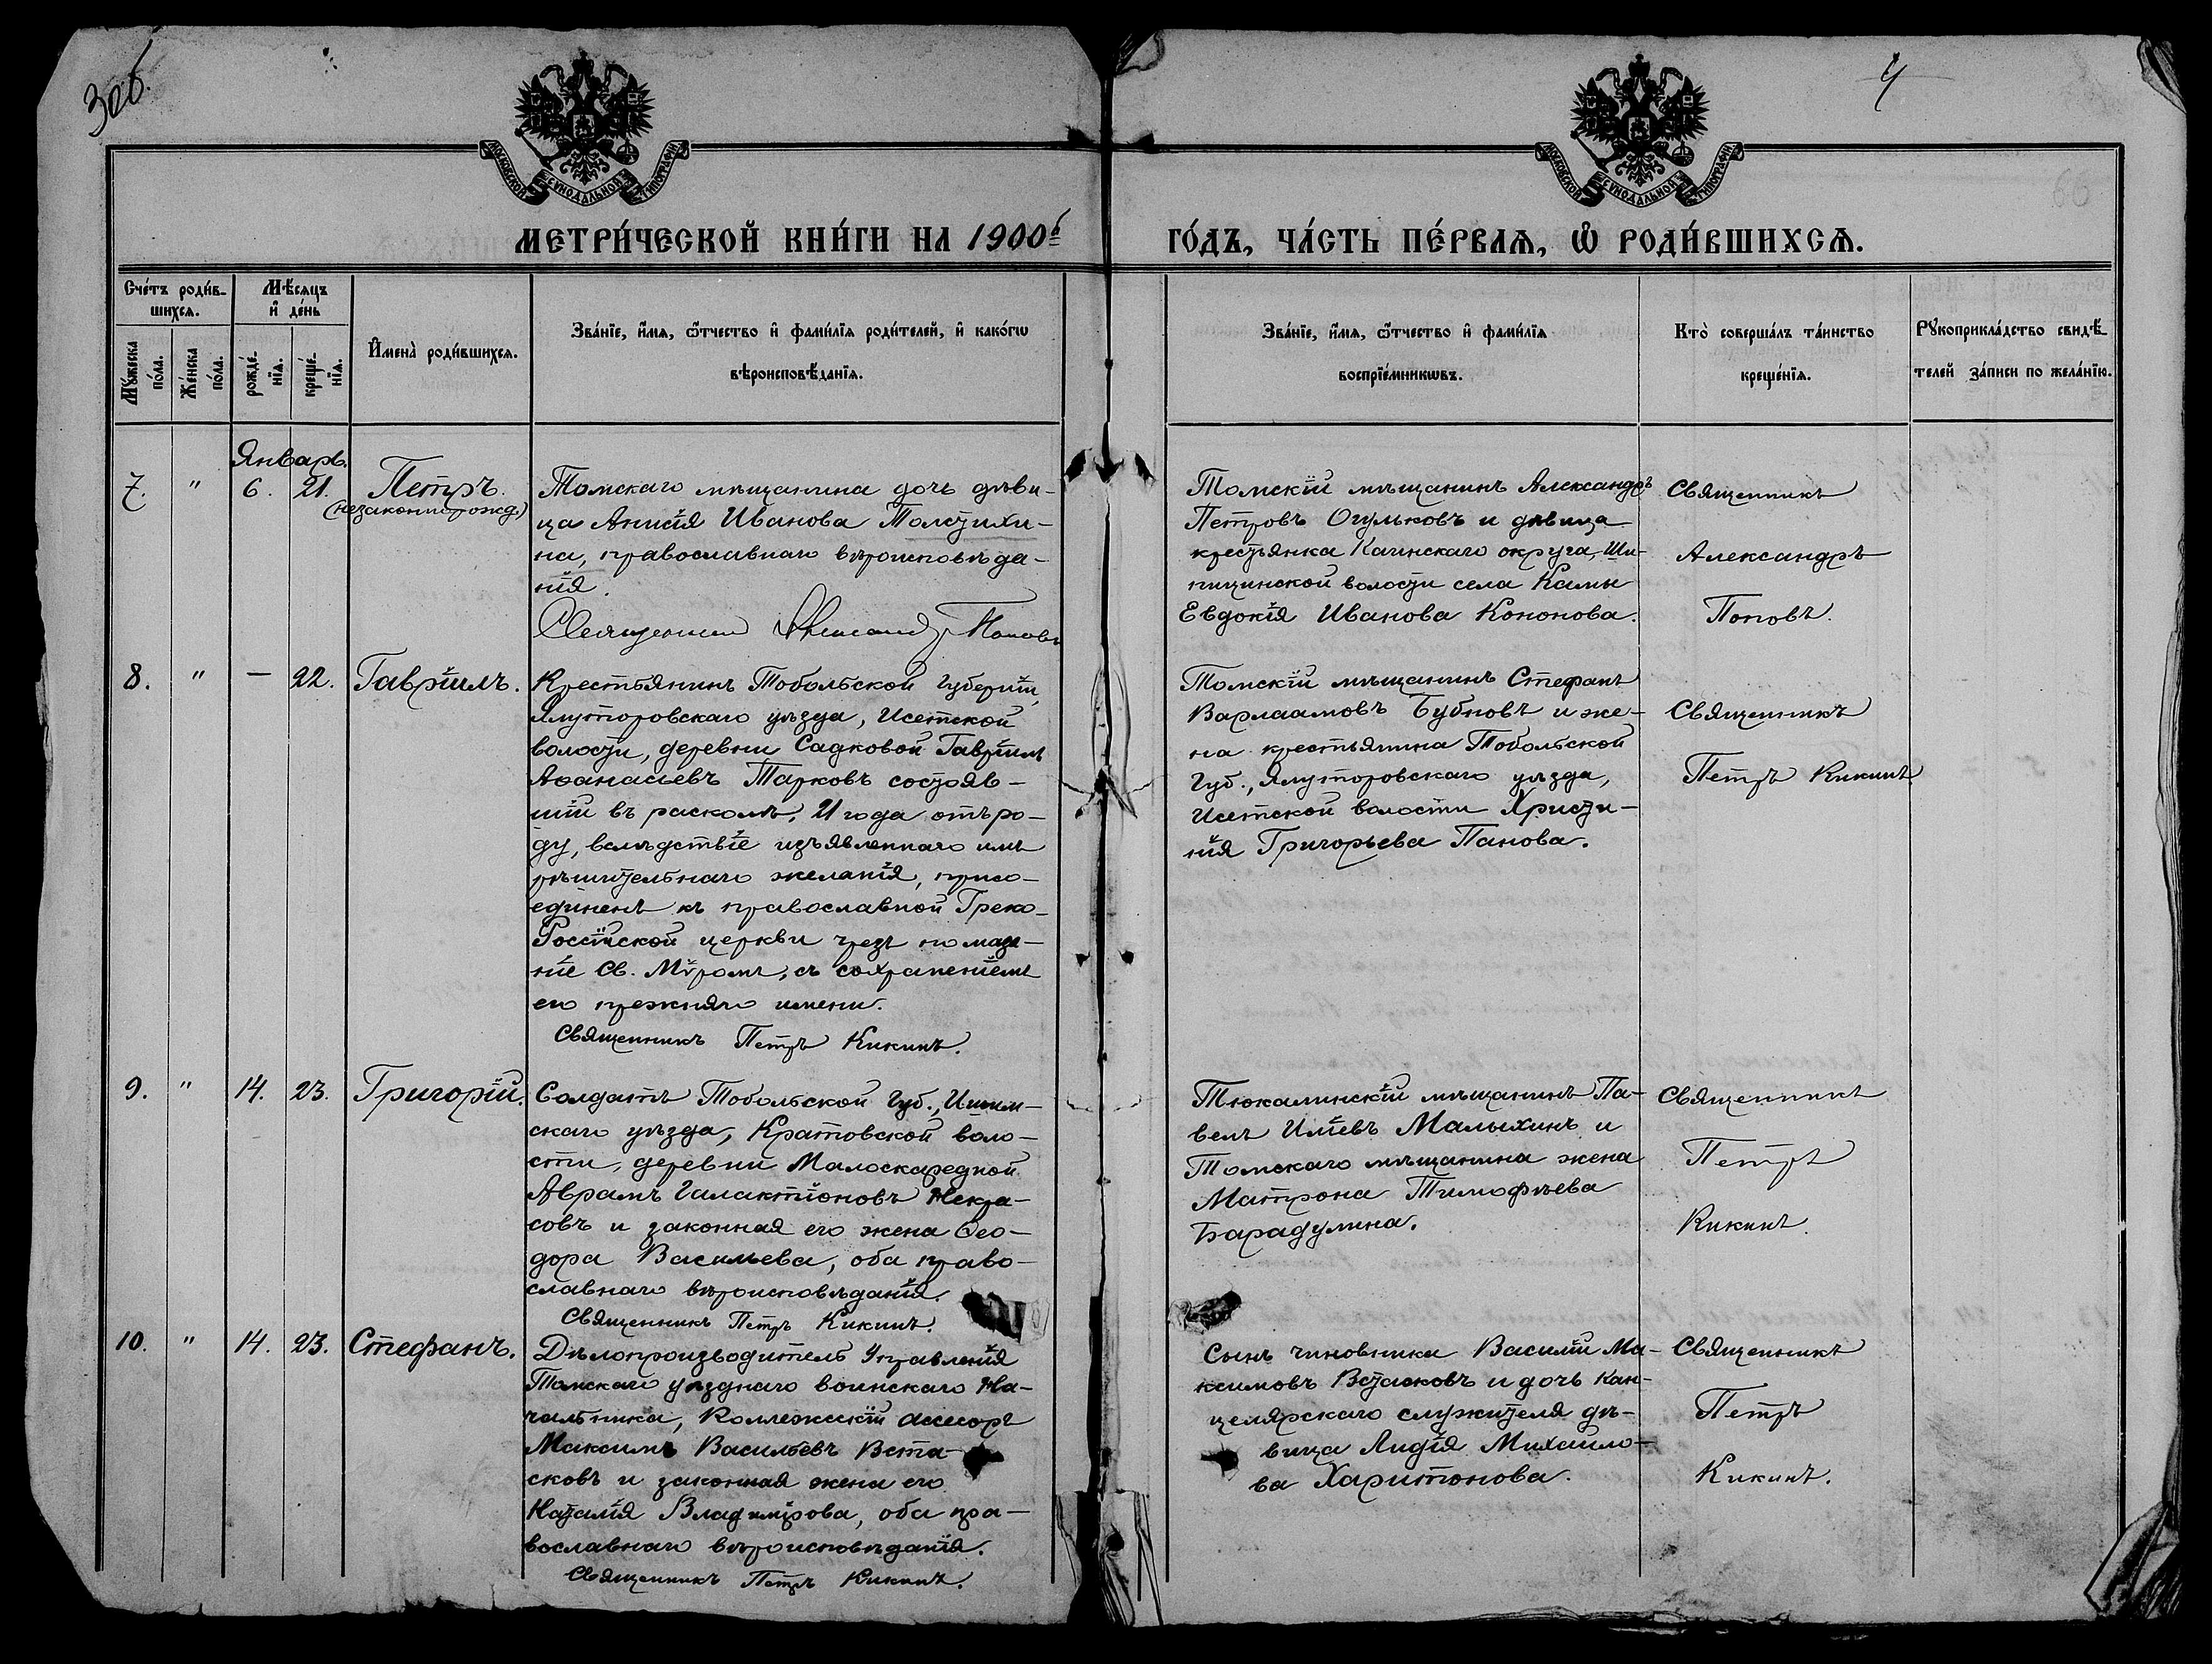 3об.
4
МОСКОВСКОЙ СѴНОДАЛЬНОЙ ТИПОГРАФІИ
МОСКОВСКОЙ СѴНОДАЛЬНОЙ ТИПОГРАФІИ
МЕТРИ́ЧЕСКОЙ КНИ́ГИ НА 1900й
ГО́ДЪ, ЧА́СТЬ ПЕ́РВАЯ, Ѿ РОДИ́ВШИХСЯ.
Сче́тъ роди́в-
шихся.
Мѣ́сяцъ
и҆ де́нь
Мꙋ́жеска
по́ла.
Же́нска
по́ла.
рожде́-
нїя.
креще́-
нїя.
И҆мена̀ роди́вшихся.
Зва́нїе, и҆́мя, ѻ҆́тчество и҆ фами́лїя роди́телей, и҆ како́гѡ
вѣроисповѣ́данїя.
Зва́нїе, и҆́мя, ѻ҆́тчество и҆ фами́лїя
воспрїе́мникѡвъ.
Кто̀ соверша́лъ та́инство
креще́нїя.
Рꙋкоприкла́дство свидѣ́-
телей за́писи по жела́нїю.
Январь.
7. " 6. 21. Петръ.
(незаконнорожд.)
Томскаго мѣщанина дочь дѣви-
ца Анисія Иванова Толстихи-
на, православнаго вѣроисповѣда-
нія.
Священник Александр Попов
Томскій мѣщанинъ Александръ
Петровъ Огульковъ и дѣвица
крестьянка Каинскаго округа, Ши-
пицинской волости села Камы
Евдокія Иванова Кононова.
Священникъ
Александръ
Поповъ.
8. " — 22. Гавріилъ.
Крестьянинъ Тобольской Губерніи,
Ялуторовскаго уѣзда, Исетской
волости, деревни Садковой Гавріилъ
Аѳанасьевъ Тарковъ состояв-
шій въ расколѣ, 21 года отъ ро-
ду, вслѣдствіе изъявленнаго имъ
рѣшительнаго желанія, присо-
единенъ къ православной Греко-
Россійской церкви чрезъ помаза-
ніе Св. Мѵромъ, съ сохраненіемъ
его прежняго имени.
Священникъ Петръ Кикинъ.
Томскій мѣщанинъ Стефанъ
Варлаамовъ Бубновъ и же-
на крестьянина Тобольской
Губ., Ялуторовскаго уѣзда,
Исетской волости Христи-
нія Григорьева Панова.
Священникъ
Петръ Кикинъ
9. " 14. 23. Григорій.
Солдатъ Тобольской Губ., Ишим-
скаго уѣзда, Кратовской воло-
сти, деревни Малоскаредной
Аврамъ Галактіоновъ Некра-
совъ и законная его жена Ѳео-
дора Васильева, оба право-
славнаго вѣроисповѣданія.
Священникъ Петръ Кикинъ.
Тюкалинскій мѣщанинъ Па-
велъ Иліевъ Малыхинъ и
Томскаго мѣщанина жена
Матрона Тимофѣева
Барадулина.
Священникъ
Петръ
Кикинъ.
10. " 14. 23. Стефанъ.
Дѣлопроизводитель Управленія
Томскаго уѣзднаго воинскаго На-
чальника, Коллежскій ассесоръ
Максимъ Васильевъ Вста-
сковъ и законная жена его
Наталія Владимірова, оба пра-
вославнаго вѣроисповѣданія.
Священникъ Петръ Кикинъ.
Сынъ чиновника Василій Ма-
ксимовъ Встасковъ и дочь кан-
целярскаго служителя дѣ-
вица Лидія Михаило-
ва Харитонова.
Священникъ
Петръ
Кикинъ.